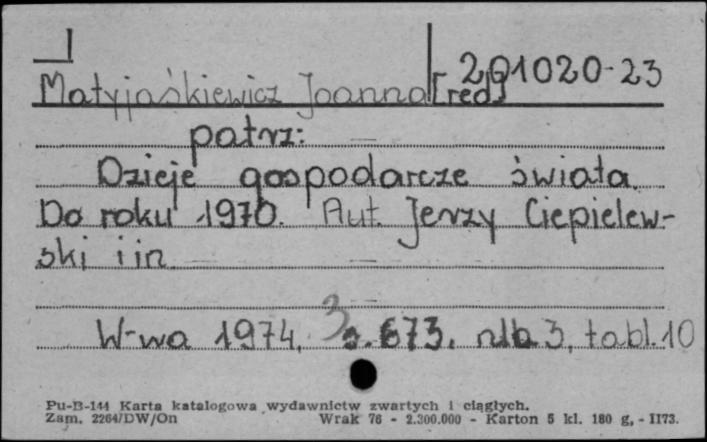 201020-23
Matyjaśkiewicz Joanna [red.]
patrz:
Dzieje gospodarcze świata.
Do roku 1970. Aut. Jerzy Ciepielew-
ski i in.
W-wa 1974, s. 673, nlb 3, tabl. 10
Pu-B-144 Karta katalogowa wydawnictw zwartych i ciągłych.
Zam. 2264/DW/On Wrak 76 - 2.300.000 - Karton 5 kl. 180 g, - II73.